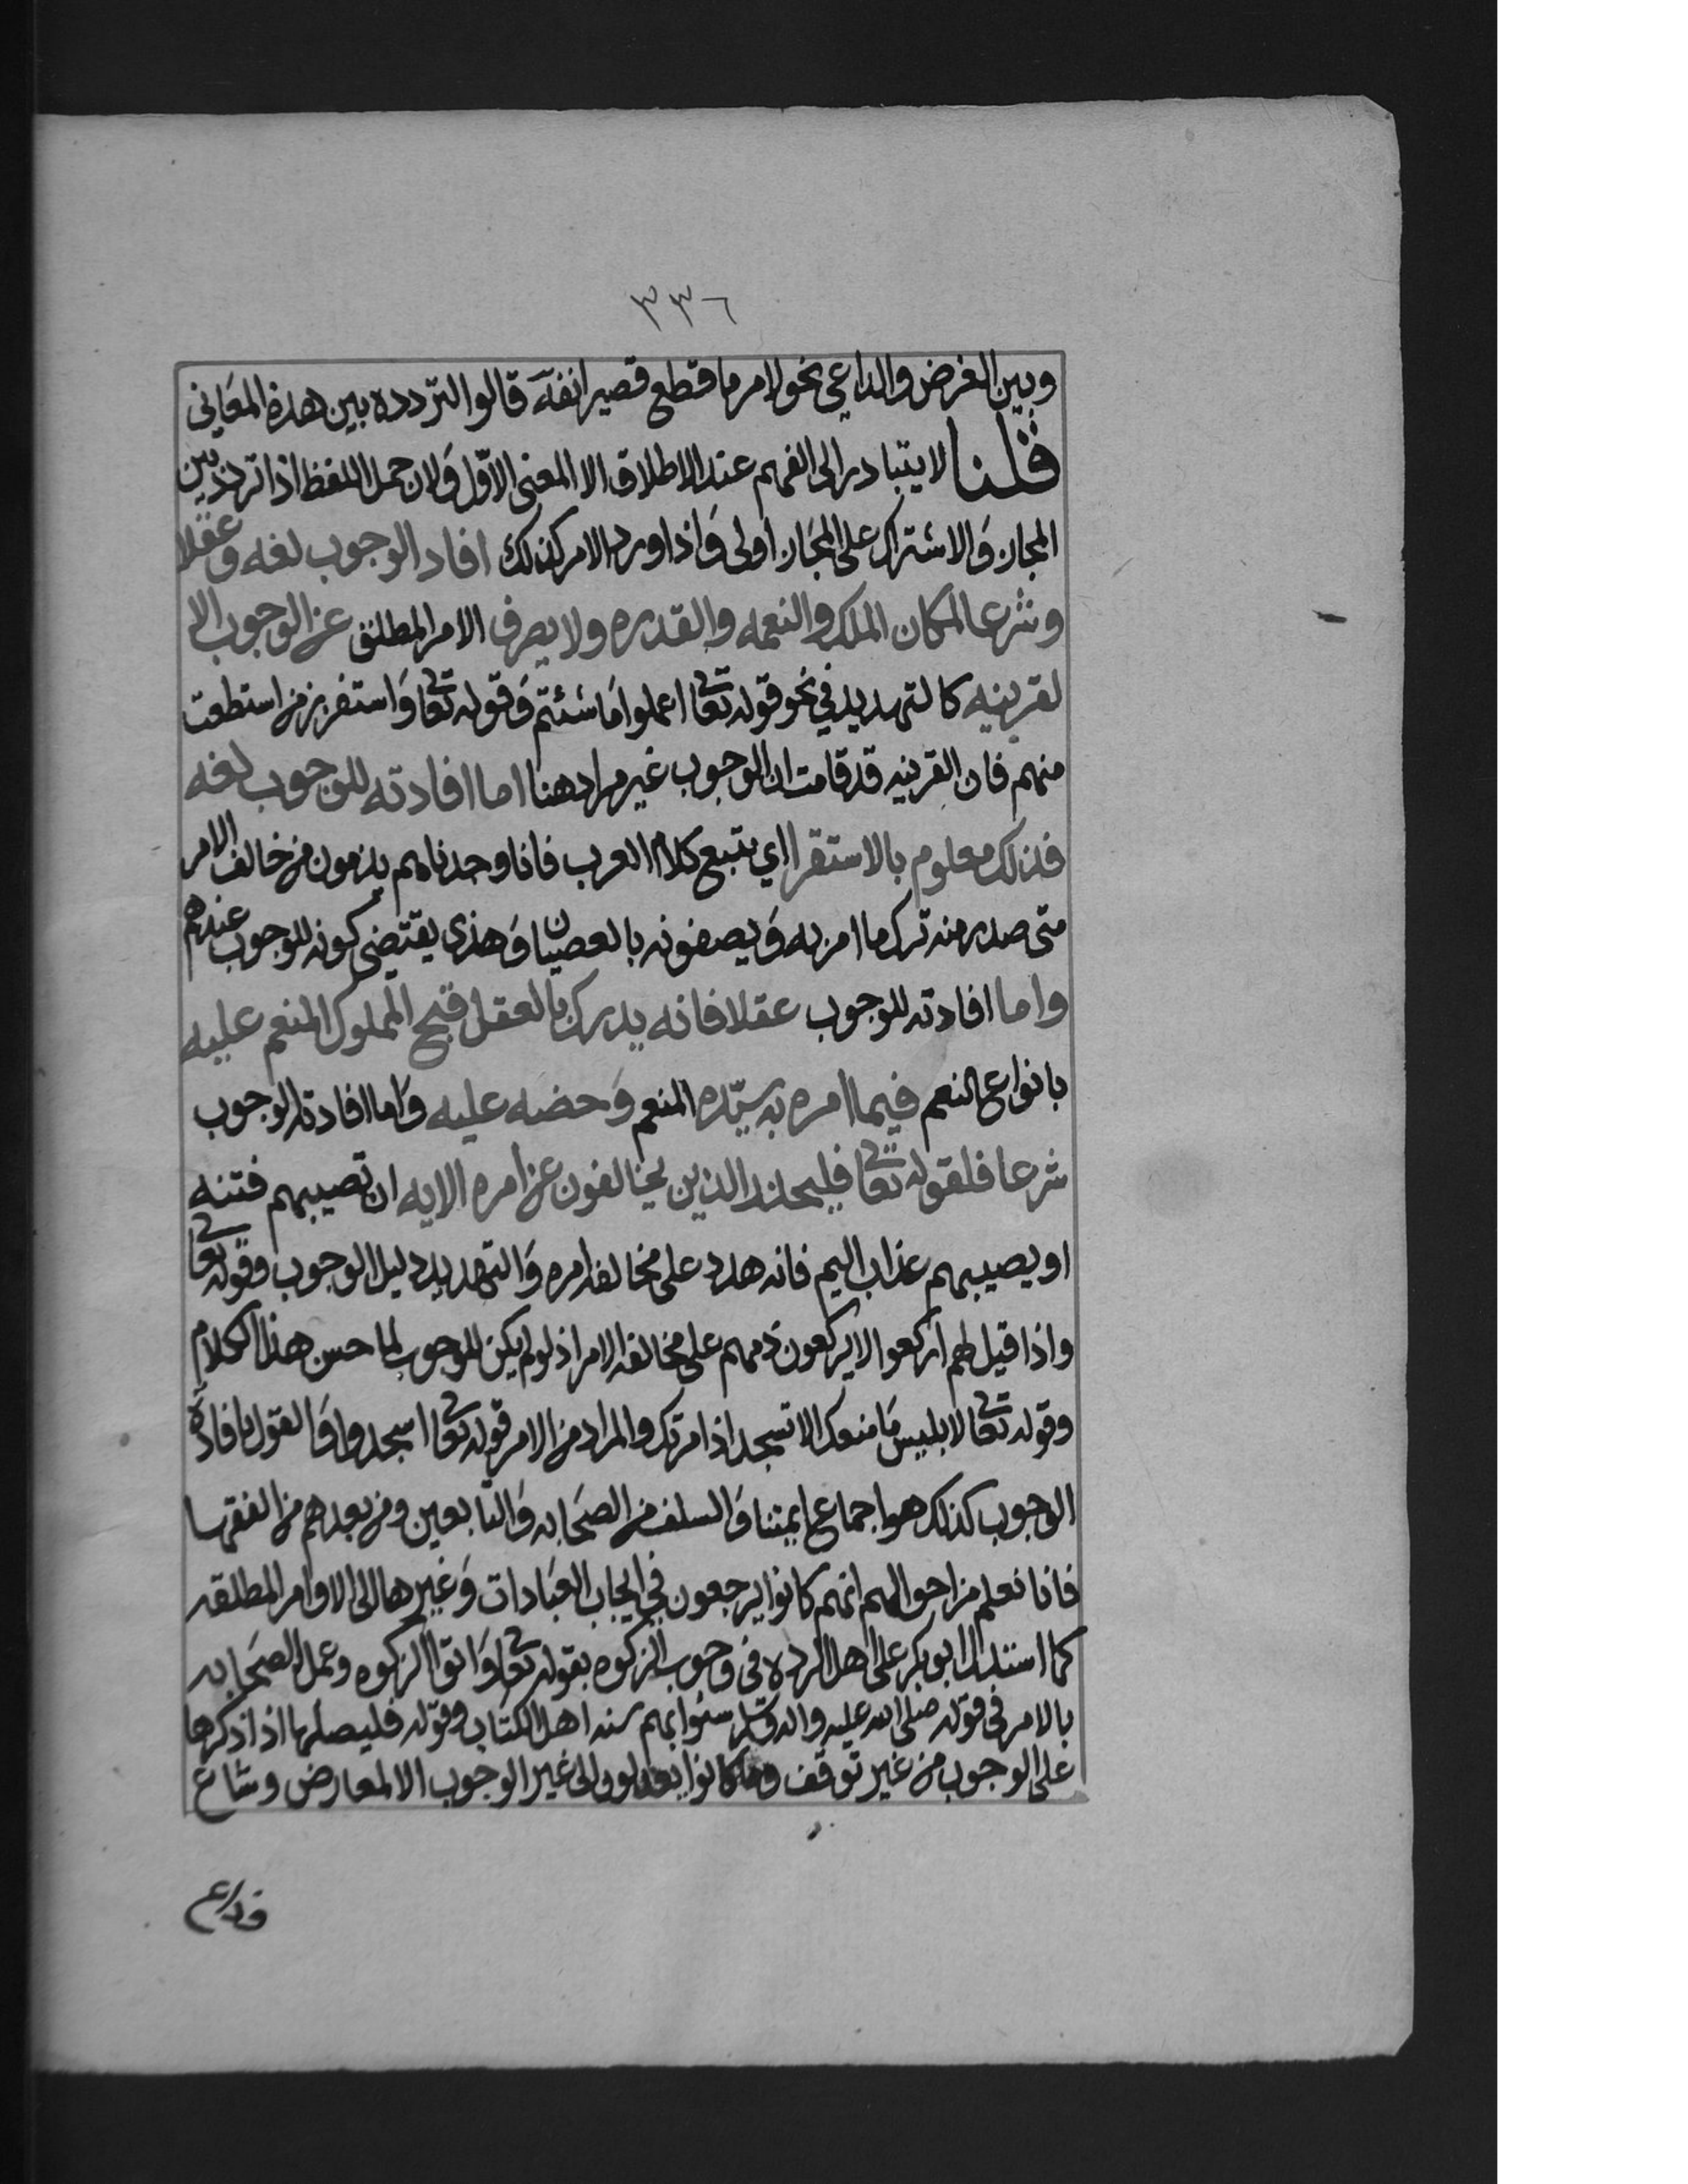 ٣٣٦
وبين الغرض والداعي نحو لامر ما قطع قصير انفه قالوا لتردده بين هذه المعاني
قلنا لا يتبادر الى الفهم عند الاطلاق الا المعنى الاول ولان حمل اللفظ اذا تردد بين
المجاز والاشتراك على المجاز اولى واذا ورد الامر كذلك افاد الوجوب لغه وعقلا
وشرعا لمكان الملك والنعمه والقدره ولا يصرف الامر المطلق عن الوجوب الا
لقرينيه كالتهديد في نحو قوله تعا اعملوا ما شئتم وقوله تعا واستفرز من استطعت
منهم فان القرينيه قد قامت ان الوجوب غير مراد هنا اما افادته للوجوب لغه
فذلك معلوم بالاستقرا اي بتبع كلام العرب فانا وجدناهم يذمون من خالف الامر
متى صدر منه ترك ما امر به ويصفونه بالعصيان وهذى يقتضي كونه للوجوب عندهم
واما افادته للوجوب عقلا فانه يدرك بالعقل قبح المملوك المنعم عليه
بانواع النعم فيما امره به سيّده المنعم وحضه عليه واما افادته الوجوب
شرعا فلقوله تعا فليحذر الذين يخالفون عن امره الايه ان تصيبهم فتنه
او يصيبهم عذاب اليم فانه هدد على مخالفه امره والتهديد دليل الوجوب وقوله تعا
واذا قيل لهم اركعوا لا يركعون ذمهم على مخالفه الامر اذ لو لم يكن للوجوب لما حسن هذا الكلام
وقوله تعا لابليس ما منعك الا تسجد اذ امرتك والمراد من الامر قوله تعا اسجدوا والقول بافادة
الوجوب كذلك هو اجماع ايمتنا والسلف من الصحابه والتابعين ومن بعدهم من الفقها
فانا نعلم من احوالهم انهم كانوا يرجعون في ايجاب العبادات وغيرها الى الاوامر المطلقه
كما استدل ابو بكر على اهل الرده في وجوب الزكوه بقوله تعا واتوا الزكوه وعمل الصحابه
بالامر في قوله صلى الله عليه واله وسلم سنوا بهم سنه اهل الكتاب وقوله فليصلها اذا ذكرها
على الوجوب من غير توقف وما كانوا يعدلون الى غير الوجوب الا لمعارض وشاع